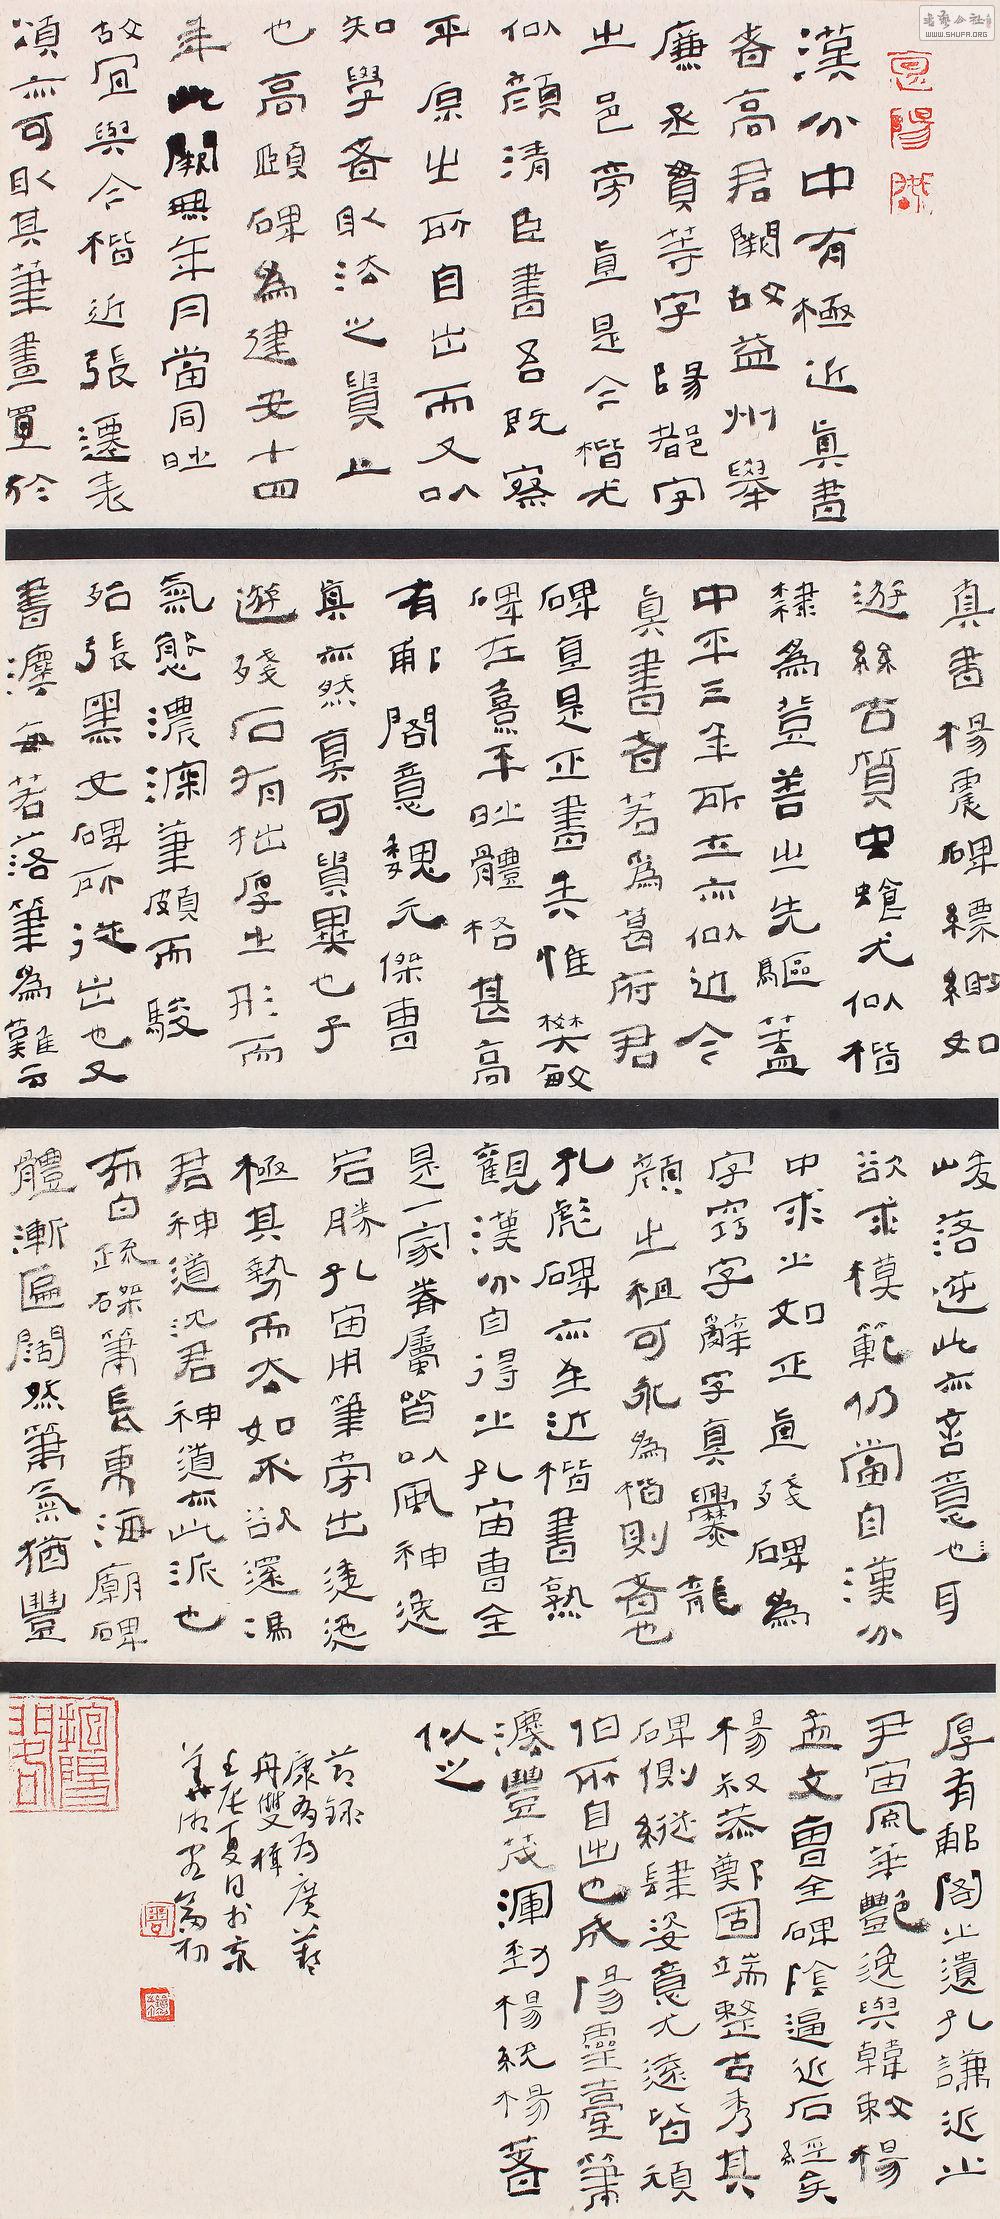 漢分中有極近真書
者高君闕故益州舉
廉丞貫等字陽都字
之邑旁直是今楷尤
似顏清臣書吾既察
平原之所自出而又以
知學者取法之貴上
也高頤碑為建安十四
年此闕無年月當同時
故宜與今楷近張遷表
頌亦可取其筆畫置於
真書楊震碑縹緲如
遊絲古質虫蝕尤似楷
隸為登善之先驅蓋
中平三年所立亦似近今
真書者若為葛府君
碑直是正書矣惟樊敏
碑在熹平時體格甚高
有郙閣意魏元傑曹
真亦然真可貴異也子
遊殘石有拙厚之形而
氣態濃深筆頗而駿
殆張黑女碑所從出也又
書法每苦落筆為難云
峻落逆此亦言意也耳
欲求模範仍當自漢分
中求之如正直殘碑為
字竅字辭字真爨龍
顏之祖可永為楷則者也
孔彪碑亦至近楷書熟
觀漢分自得之孔宙曹全
是一家眷屬皆以風神逸
宕勝孔宙用筆旁出逶迤
極其勢而去如不欲還馮
君神道沈君神道亦此派也
布白疏磔筆長東海廟碑
體漸匾闊然筆氣猶豐
厚有郙閣之遺孔謙近之
尹宙風華艷逸與韓敕楊
孟文曹全碑陰逼近石經矣
楊叔恭鄭固端整古秀其
碑側縱肆姿意尤遠皆頑
伯所自出也成陽靈臺筆
法豐茂渾勁楊統楊著
似之
節錄
康有為廣藝
舟雙楫
壬辰夏日於京
SHUFA.ORG